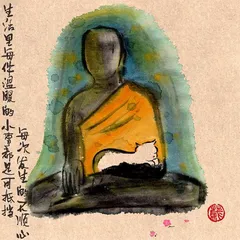 生活里每件溫暖的小事都是可抵擋
每次发生的不順心